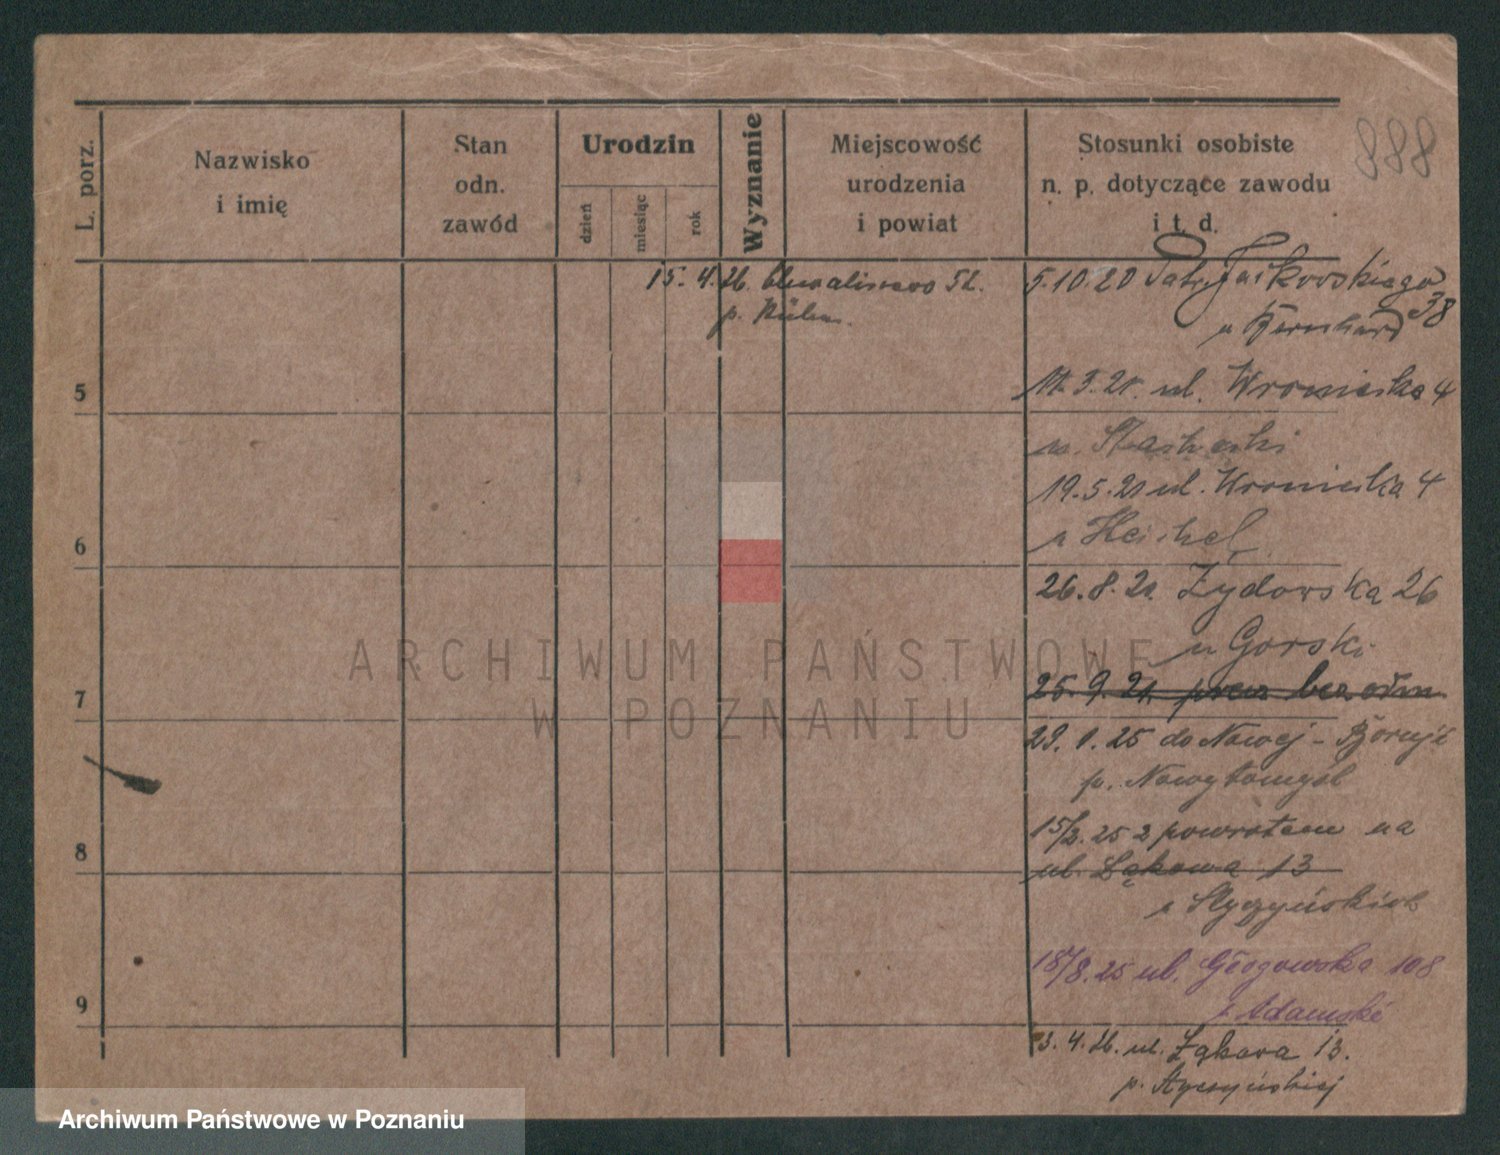 888
L. porz.
Nazwisko
i imię
Stan
odn.
zawód
Urodzin
dzień
miesiąc
rok
Wyznanie
Miejscowość
urodzenia
i powiat
Stosunki osobiste
n. p. dotyczące zawodu
i t. d.
15. 4. 26.
p.
5.10.20 Jackowskiego
38
u Bernhard
5
3. 21. ul. Wroniecka 4
19.5.21 ul. Wroniecka 4
6
26. 8. 21. Żydowska 26
u Gorski
25. 9. 21.
7
29. 1. 25 do Nowej-Boruji
p. Nowytomyśl
15/2. 25 z powrotem na
8
ul. Łąkowa 13
u Styczyńskich
18/8. 25 ul. Głogowska 108
u Adamski
9
3. 4. 26. ul. Łąkowa 13.
p. Styczyńskiej
ARCHIWUM PAŃSTWOWE
W POZNANIU
Archiwum Państwowe w Poznaniu